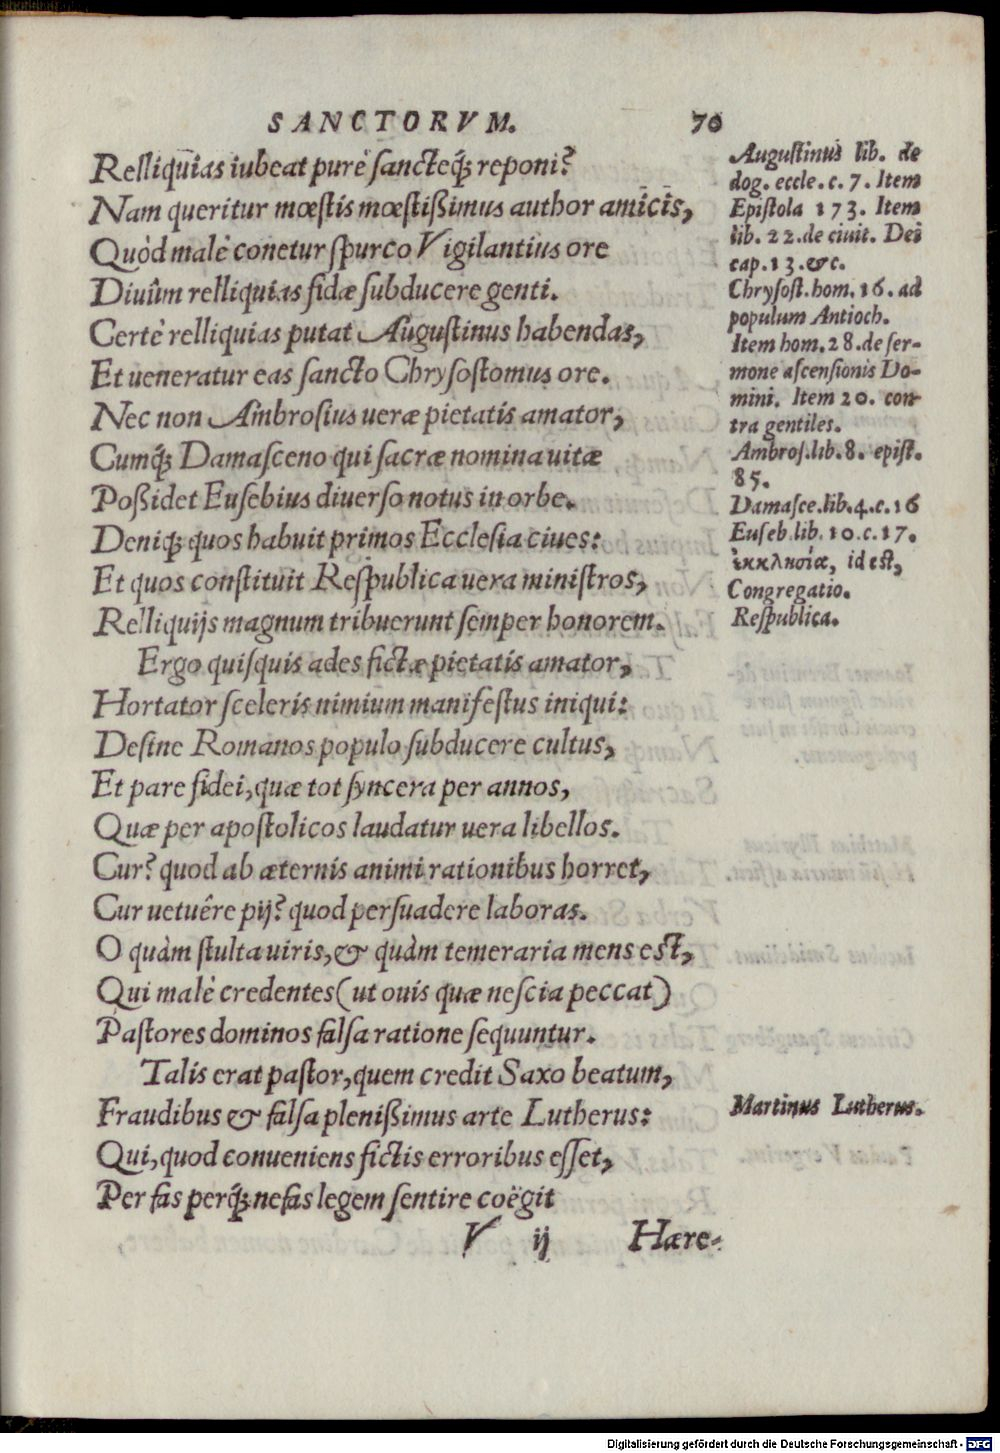 SANCTORVM. 70
Relliquias iubeat purè sancteq́; reponi?
Nam queritur mœstis mœstißimus author amicis,
Quòd malè conetur spurco Vigilantius ore
Diuûm relliquias fidæ subducere genti.
Certè relliquias putat Augustinus habendas,
Et ueneratur eas sancto Chrysostomus ore.
Nec non Ambrosius ueræ pietatis amator,
Cumq́; Damasceno qui sacræ nomina uitæ
Poßidet Eusebius diuerso notus in orbe.
Deniq́; quos habuit primos Ecclesia ciues:
Et quos constituit Respublica uera ministros,
Relliquijs magnum tribuerunt semper honorem.
Ergo quisquis ades fictæ pietatis amator,
Hortator sceleris nimium manifestus iniqui:
Desine Romanos populo subducere cultus,
Et pare fidei, quæ tot syncera per annos,
Quæ per apostolicos laudatur uera libellos.
Cur? quod ab æternis animi rationibus horret,
Cur uetuêre pij? quod persuadere laboras.
O quàm stulta uiris, & quàm temeraria mens est,
Qui malè credentes (ut ouis quæ nescia peccat)
Pastores dominos falsa ratione sequuntur.
Talis erat pastor, quem credit Saxo beatum,
Fraudibus & falsa plenißimus arte Lutherus:
Qui, quod conueniens fictis erroribus esset,
Per fas perq́; nefas legem sentire coëgit
V ij Hære-
Augustinus lib. de
dog. eccle. c. 7. Item
Epistola 173. Item
lib. 22. de ciuit. Dei
cap. 13. &c.
Chrysost. hom. 16. ad
populum Antioch.
Item hom. 28. de ser-
mone ascensionis Do-
mini. Item 20. con-
tra gentiles.
Ambros. lib. 8. epist.
85.
Damasce. lib. 4. c. 16
Euseb. lib. 10. c. 17.
ἐκκλησία, id est,
Congregatio.
Respublica.
Martinus Lutherus.
Digitalisierung gefördert durch die Deutsche Forschungsgemeinschaft - DFG